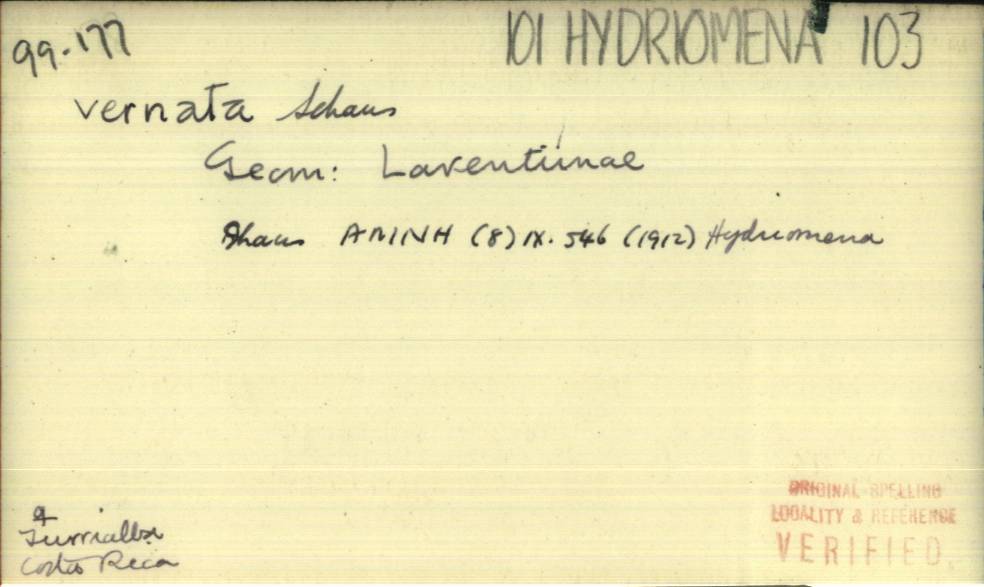 99.177
101 HYDRIOMENA 103
vernata Schaus
Geom: Larentiinae
Schaus AMNH (8) IX. 546 (1912) Hydriomena
♀
Turrialba
Costa Rica
ORIGINAL SPELLING
LOCALITY & REFERENCE
VERIFIED